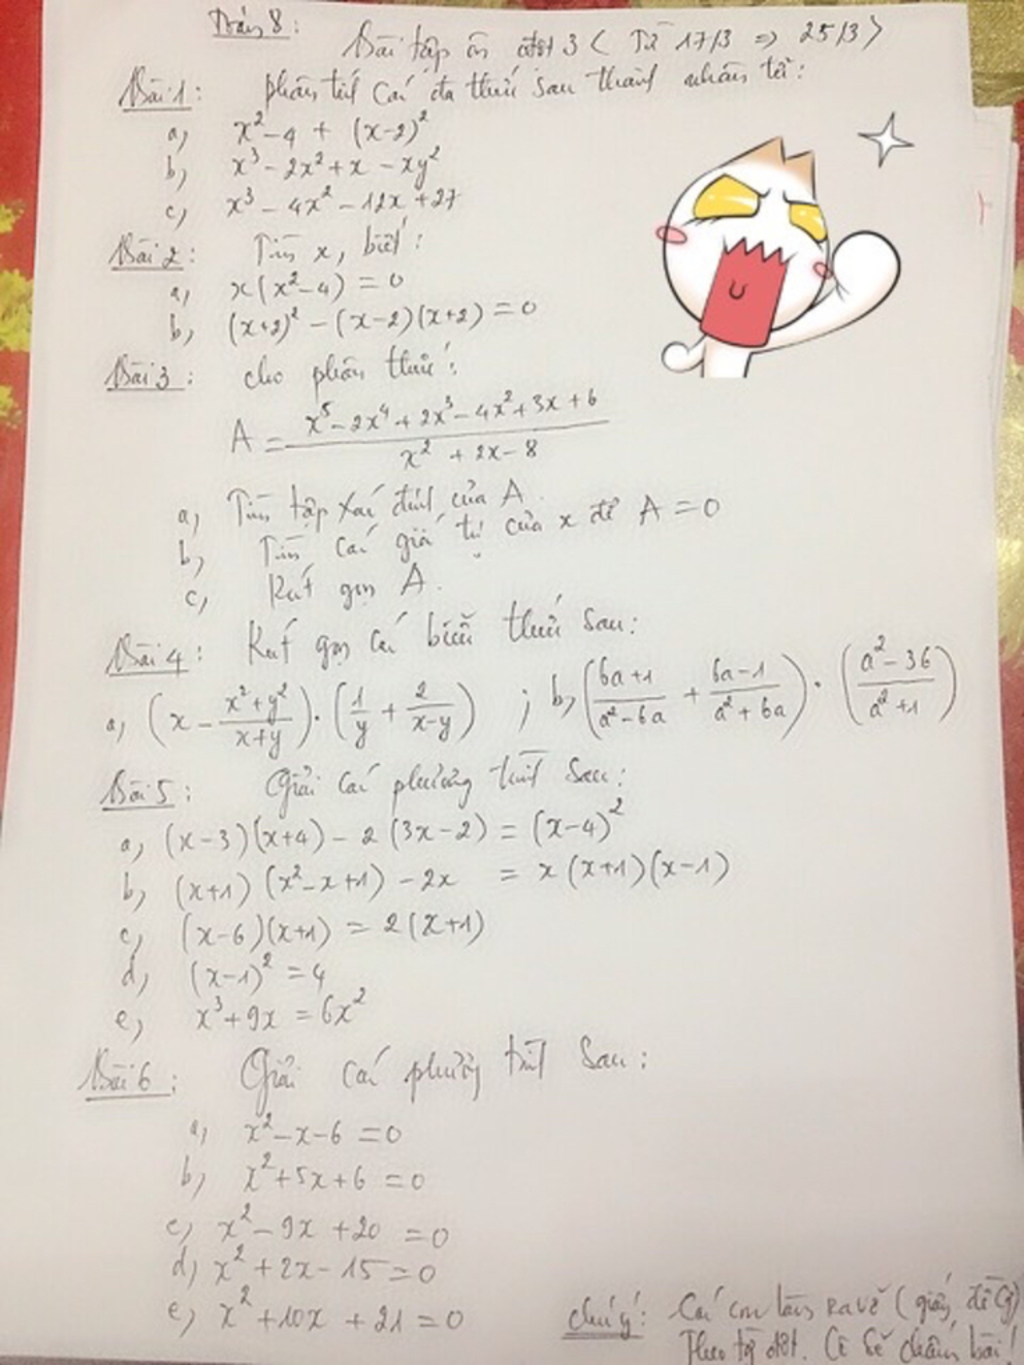 Toán 8:
Bài tập ôn đợt 3 < Từ 17/3 => 25/3 >
Bài 1: phân tích các đa thức sau thành nhân tử:
a, x² - 4 + (x-2)²
b, x³ - 2x² + x - xy²
c, x³ - 4x² - 12x + 27
Bài 2: Tìm x, biết:
a, x(x² - 4) = 0
b, (x+2)² - (x-2)(x+2) = 0
Bài 3: cho phân thức:
A = \frac{x⁵ - 2x⁴ + 2x³ - 4x² + 3x + 6}{x² + 2x - 8}
a, Tìm tập xác định của A.
b, Tìm các giá trị của x để A = 0
c, Rút gọn A.
Bài 4: Rút gọn các biểu thức sau:
a, (x - \frac{x² + y²}{x+y}) . (\frac{1}{y} + \frac{2}{x-y}) ; b, (\frac{6a+1}{a² - 6a} + \frac{6a-1}{a² + 6a}) . (\frac{a² - 36}{a² + 1})
Bài 5: Giải các phương trình sau:
a, (x-3)(x+4) - 2(3x-2) = (x-4)²
b, (x+1)(x² - x + 1) - 2x = x(x+1)(x-1)
c, (x-6)(x+1) = 2(x+1)
d, (x-1)² = 4
e, x³ + 9x = 6x²
Bài 6: Giải các phương trình sau:
a, x² - x - 6 = 0
b, x² + 5x + 6 = 0
c, x² - 9x + 20 = 0
d, x² + 2x - 15 = 0
e, x² + 10x + 21 = 0
chú ý: Các con làm ra vở (giấy để Cô)
Theo từng đợt. Cô sẽ chấm bài!